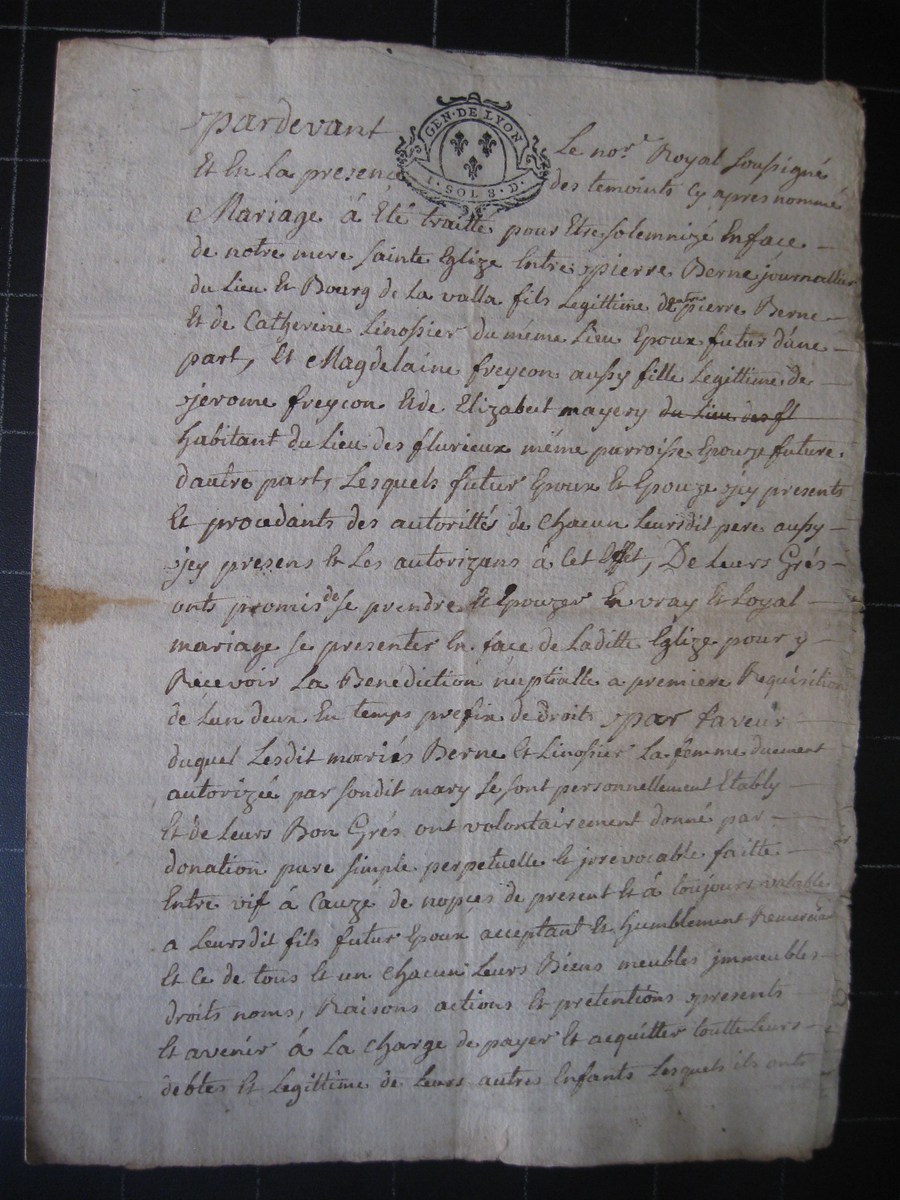 pardevant Le nore Royal soussigné
GEN·DE LYON
1·SOL 8·D·
Et En la presence des temoints cy apres nommé
Mariage á Eté traitté pour Etre solemnizé Enface
de notre mere sainte Eglize Entre pierre Berne journallier
du Lieu Et Bourg de La valla fils Legittime d'autre pierre Berne
Et de Catherine Linossier du méme Lieu Epoux futur d'une
part, Et Magdelaine freycon aussy fille Legittime de
jerome freycon Et de Elizabet mayery du Lieu des fl
habitant du Lieu des flurieux méme parroisse Epouze future
d'autre part, Lesquels futur Epoux Et Epouze jcy presents
Et procedants des autorittés de chacun Leursdit pere aussy
jcy presens Et Les autorizans á cet Effet, De Leurs Grés
onts promis de se prendre Et Epouzer En vray Et Loyal
mariage se presenter En face de Laditte Eglize pour y
Recevoir La Benédiction nuptialle a premiere Requisition
de Lun deux En temps prefix de droits par faveur
duquel Lesdit mariés Berne Et Linossier La femme duement
autorizée par sondit mary se sont personnellement Etably
Et de Leurs Bon Grés ont volontairement donné par
donation pure simple perpetuelle Et jrrevocable faitte
Entre vif á Cauze de nopces de present Et á toujours valable
a Leursdit fils futur Epoux acceptant Et humblement Remerciant
Et ce de tous Et un chacun Leurs Biens meubles jmmeubles
droits noms, Raisons actions Et pretentions presents
Et avenir á La charge de payer Et acquitter toutte Leurs
debtes Et Legittime de Leurs autres Enfants Lesquels ils onts